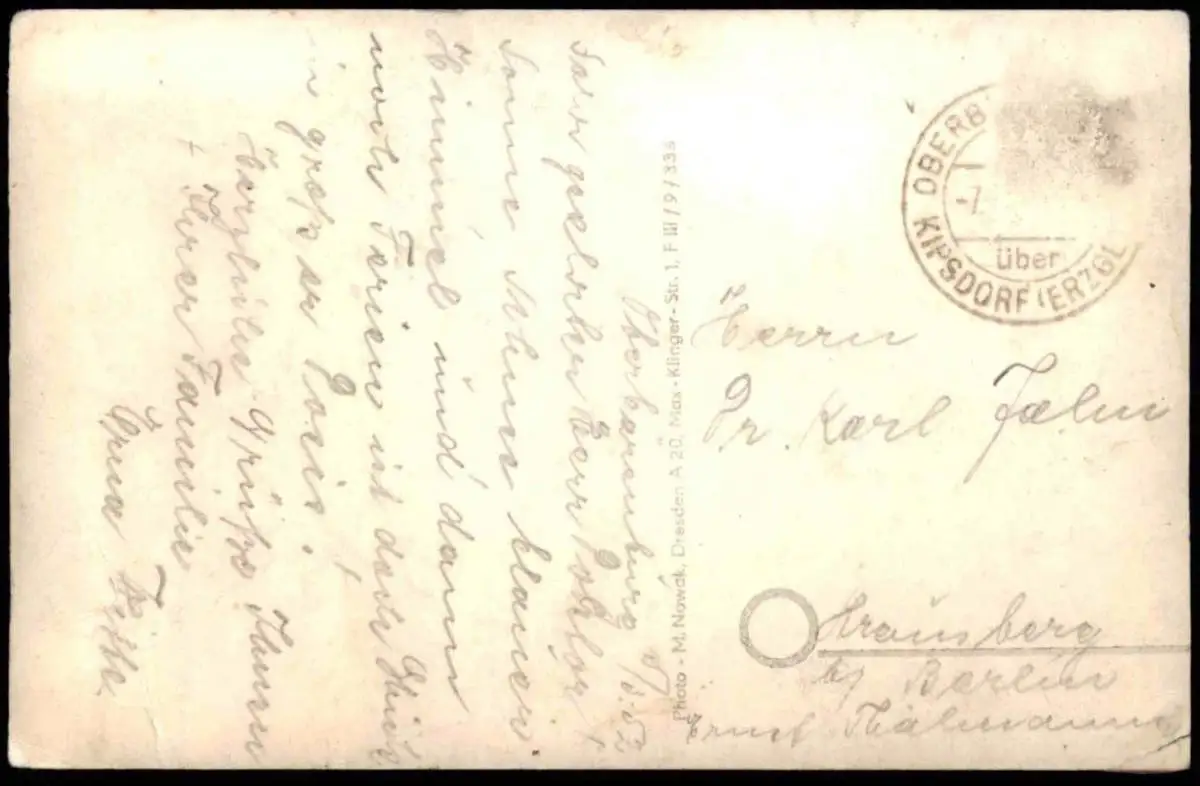 Oberbärenburg 8/3.52
Sehr geehrter Herr Doktor!
Sonne, Schnee, blauer
Himmel und dann
noch Ferien ist doch Glück
in großer Dosis!
Herzliche Grüße Ihnen
+ Ihrer Familie
Erna
Photo - M. Nowak, Dresden A 20, Max-Klinger-Str. 1, F III/9/336
OBERB
7
über
KIPSDORF (ERZGE
Herrn
Dr. Karl
Strausberg
bei Berlin
Ernst Thälmann